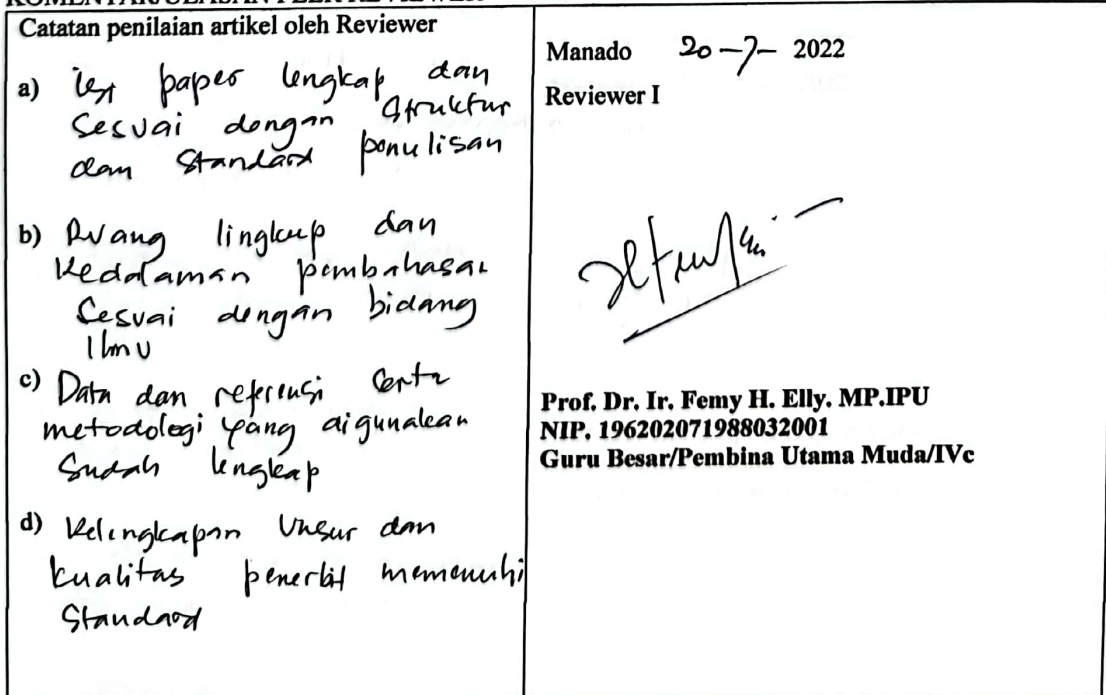 KOMENTAR/ULASAN PEER REVIEWER
Catatan penilaian artikel oleh Reviewer
a) paper lengkap dan
Sesuai dengan Struktur
dan Standard penulisan
b) Ruang lingkup dan
Kedalaman pembahasan
Sesuai dengan bidang
Ilmu
c) Data dan referensi Serta
metodologi yang digunakan
Sudah lengkap
d) Kelengkapan Unsur dan
kualitas penerbit memenuhi
Standard
Manado 20-7- 2022
Reviewer I
Prof. Dr. Ir. Femy H. Elly. MP.IPU
NIP. 196202071988032001
Guru Besar/Pembina Utama Muda/IVc